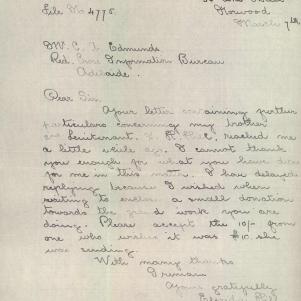 File No 4775
Norwood,
March 7th
Mr C. Edmunds
Red Cross Information Bureau
Adelaide.
Dear Sir,
Your letter containing further
particulars concerning my brother
Lieutenant reached me
a little while ago. I cannot thank
you enough for what you have done
for me in this matter. I have delayed
replying because I wished when
writing to enclose a small donation
towards the good work you are
doing. Please accept the 10/- from
one who wishes it was £10 she
was sending
With many thanks
I remain
Yours gratefully